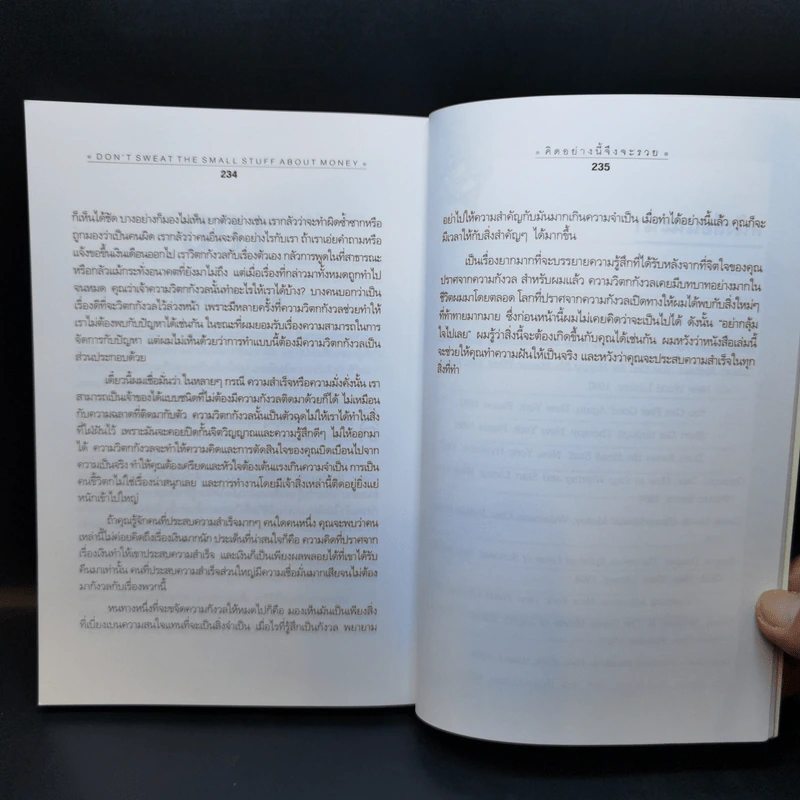 DON'T SWEAT THE SMALL STUFF ABOUT MONEY
234
ก็เห็นได้ชัด บางอย่างก็มองไม่เห็น ยกตัวอย่างเช่น เรากลัวว่าจะทำผิดซ้ำซากหรือ
ถูกมองว่าเป็นคนผิด เรากลัวว่าคนอื่นจะคิดอย่างไรกับเรา ถ้าเราเอ่ยคำถามหรือ
แจ้งขอขึ้นเงินเดือนออกไป เราวิตกกังวลกับเรื่องตัวเอง กลัวการพูดในที่สาธารณะ
หรือกลัวแม้กระทั่งอนาคตที่ยังมาไม่ถึง แต่เมื่อเรื่องที่กล่าวมาทั้งหมดถูกทำไป
จนหมด คุณว่าเจ้าความวิตกกังวลนั้นทำอะไรให้เราได้บ้าง? บางคนบอกว่าเป็น
เรื่องดีที่จะวิตกกังวลไว้ล่วงหน้า เพราะมีหลายครั้งที่ความวิตกกังวลช่วยทำให้
เราไม่ต้องพบกับปัญหาได้เช่นกัน ในขณะที่ผมยอมรับเรื่องความสามารถในการ
จัดการกับปัญหา แต่ผมไม่เห็นด้วยว่าการทำแบบนี้ต้องมีความวิตกกังวลเป็น
ส่วนประกอบด้วย
เดี๋ยวนี้ผมเชื่อมั่นว่า ในหลายๆ กรณี ความสำเร็จหรือความมั่งคั่งนั้น เรา
สามารถเป็นเจ้าของได้แบบชนิดที่ไม่ต้องมีความกังวลติดมาด้วยก็ได้ ไม่เหมือน
กับความฉลาดที่ติดมากับตัว ความวิตกกังวลนั้นเป็นตัวฉุดไม่ให้เราได้ทำในสิ่ง
ที่ใฝ่ฝันไว้ เพราะมันจะคอยปิดกั้นจิตวิญญาณและความรู้สึกดีๆ ไม่ให้ออกมา
ได้ ความวิตกกังวลจะทำให้ความคิดและการตัดสินใจของคุณบิดเบือนไปจาก
ความเป็นจริง ทำให้คุณต้องเครียดและหัวใจต้องเต้นแรงเกินความจำเป็น การเป็น
คนขี้วิตกไม่ใช่เรื่องน่าสนุกเลย และการทำงานโดยมีเจ้าสิ่งเหล่านี้ติดอยู่ยิ่งแย่
หนักเข้าไปใหญ่
ถ้าคุณรู้จักคนที่ประสบความสำเร็จมากๆ คนใดคนหนึ่ง คุณจะพบว่าคน
เหล่านี้ไม่ค่อยคิดถึงเรื่องเงินมากนัก ประเด็นที่น่าสนใจก็คือ ความคิดที่ปราศจาก
เรื่องเงินทำให้เขาประสบความสำเร็จ และเงินก็เป็นเพียงผลพลอยได้ที่เขาได้รับ
คืนมาเท่านั้น คนที่ประสบความสำเร็จส่วนใหญ่มีความเชื่อมั่นมากเสียจนไม่ต้อง
มากังวลกับเรื่องพวกนี้
หนทางหนึ่งที่จะขจัดความกังวลให้หมดไปก็คือ มองเห็นมันเป็นเพียงสิ่ง
ที่เบี่ยงเบนความสนใจแทนที่จะเป็นสิ่งจำเป็น เมื่อไรที่รู้สึกเป็นกังวล พยายาม
คิดอย่างนี้จึงจะรวย
235
อย่าไปให้ความสำคัญกับมันมากเกินความจำเป็น เมื่อทำได้อย่างนี้แล้ว คุณก็จะ
มีเวลาให้กับสิ่งสำคัญๆ ได้มากขึ้น
เป็นเรื่องยากมากที่จะบรรยายความรู้สึกที่ได้รับหลังจากที่จิตใจของคุณ
ปราศจากความกังวล สำหรับผมแล้ว ความวิตกกังวลเคยมีบทบาทอย่างมากใน
ชีวิตผมมาโดยตลอด โลกที่ปราศจากความกังวลเปิดทางให้ผมได้พบกับสิ่งใหม่ๆ
ที่ท้าทายมากมาย ซึ่งก่อนหน้านี้ผมไม่เคยคิดว่าจะเป็นไปได้ ดังนั้น "อยากลุ้ม
ใจไปเลย" ผมรู้ว่าสิ่งนี้จะต้องเกิดขึ้นกับคุณได้เช่นกัน ผมหวังว่าหนังสือเล่มนี้
จะช่วยให้คุณทำความฝันให้เป็นจริง และหวังว่าคุณจะประสบความสำเร็จในทุก
สิ่งที่ทำ